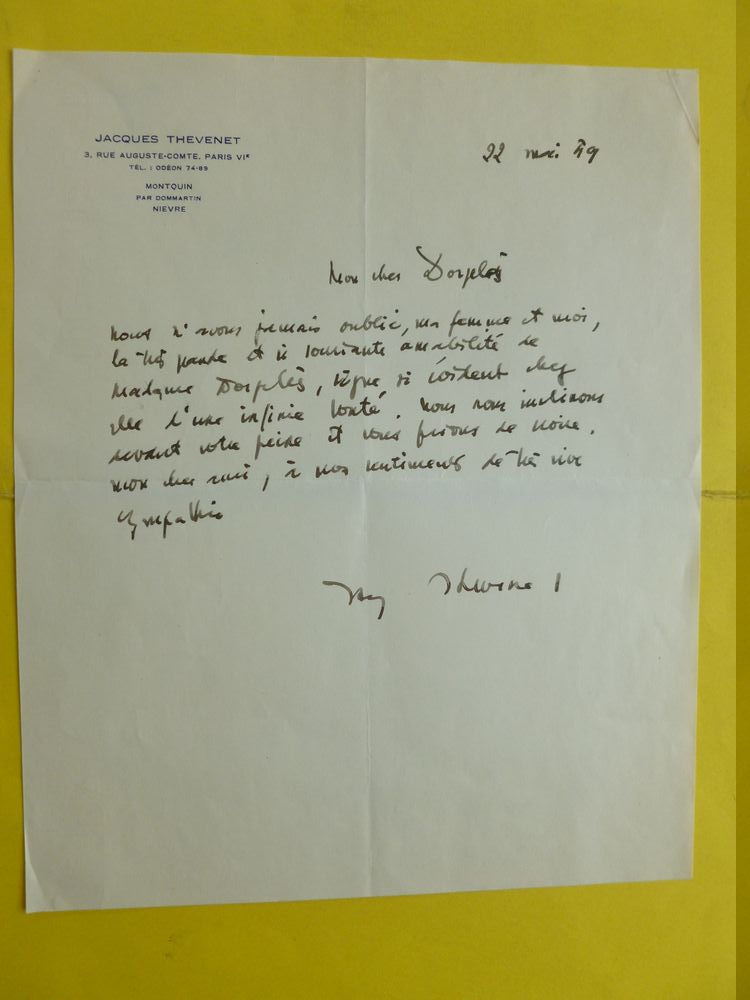 JACQUES THEVENET
3, RUE AUGUSTE-COMTE, PARIS VIE
TÉL. : ODÉON 74-89
MONTQUIN
PAR DOMMARTIN
NIEVRE
22 mai 59
Mon cher Dorgelès
nous n'avons jamais oublié, ma femme et moi,
la très grande et si souriante amabilité de
Madame Dorgelès, signe si évident chez
elle d'une infinie bonté. Nous nous inclinons
devant votre peine et vous prions de croire,
mon cher ami, à nos sentiments de très vive
sympathie
Thevenet